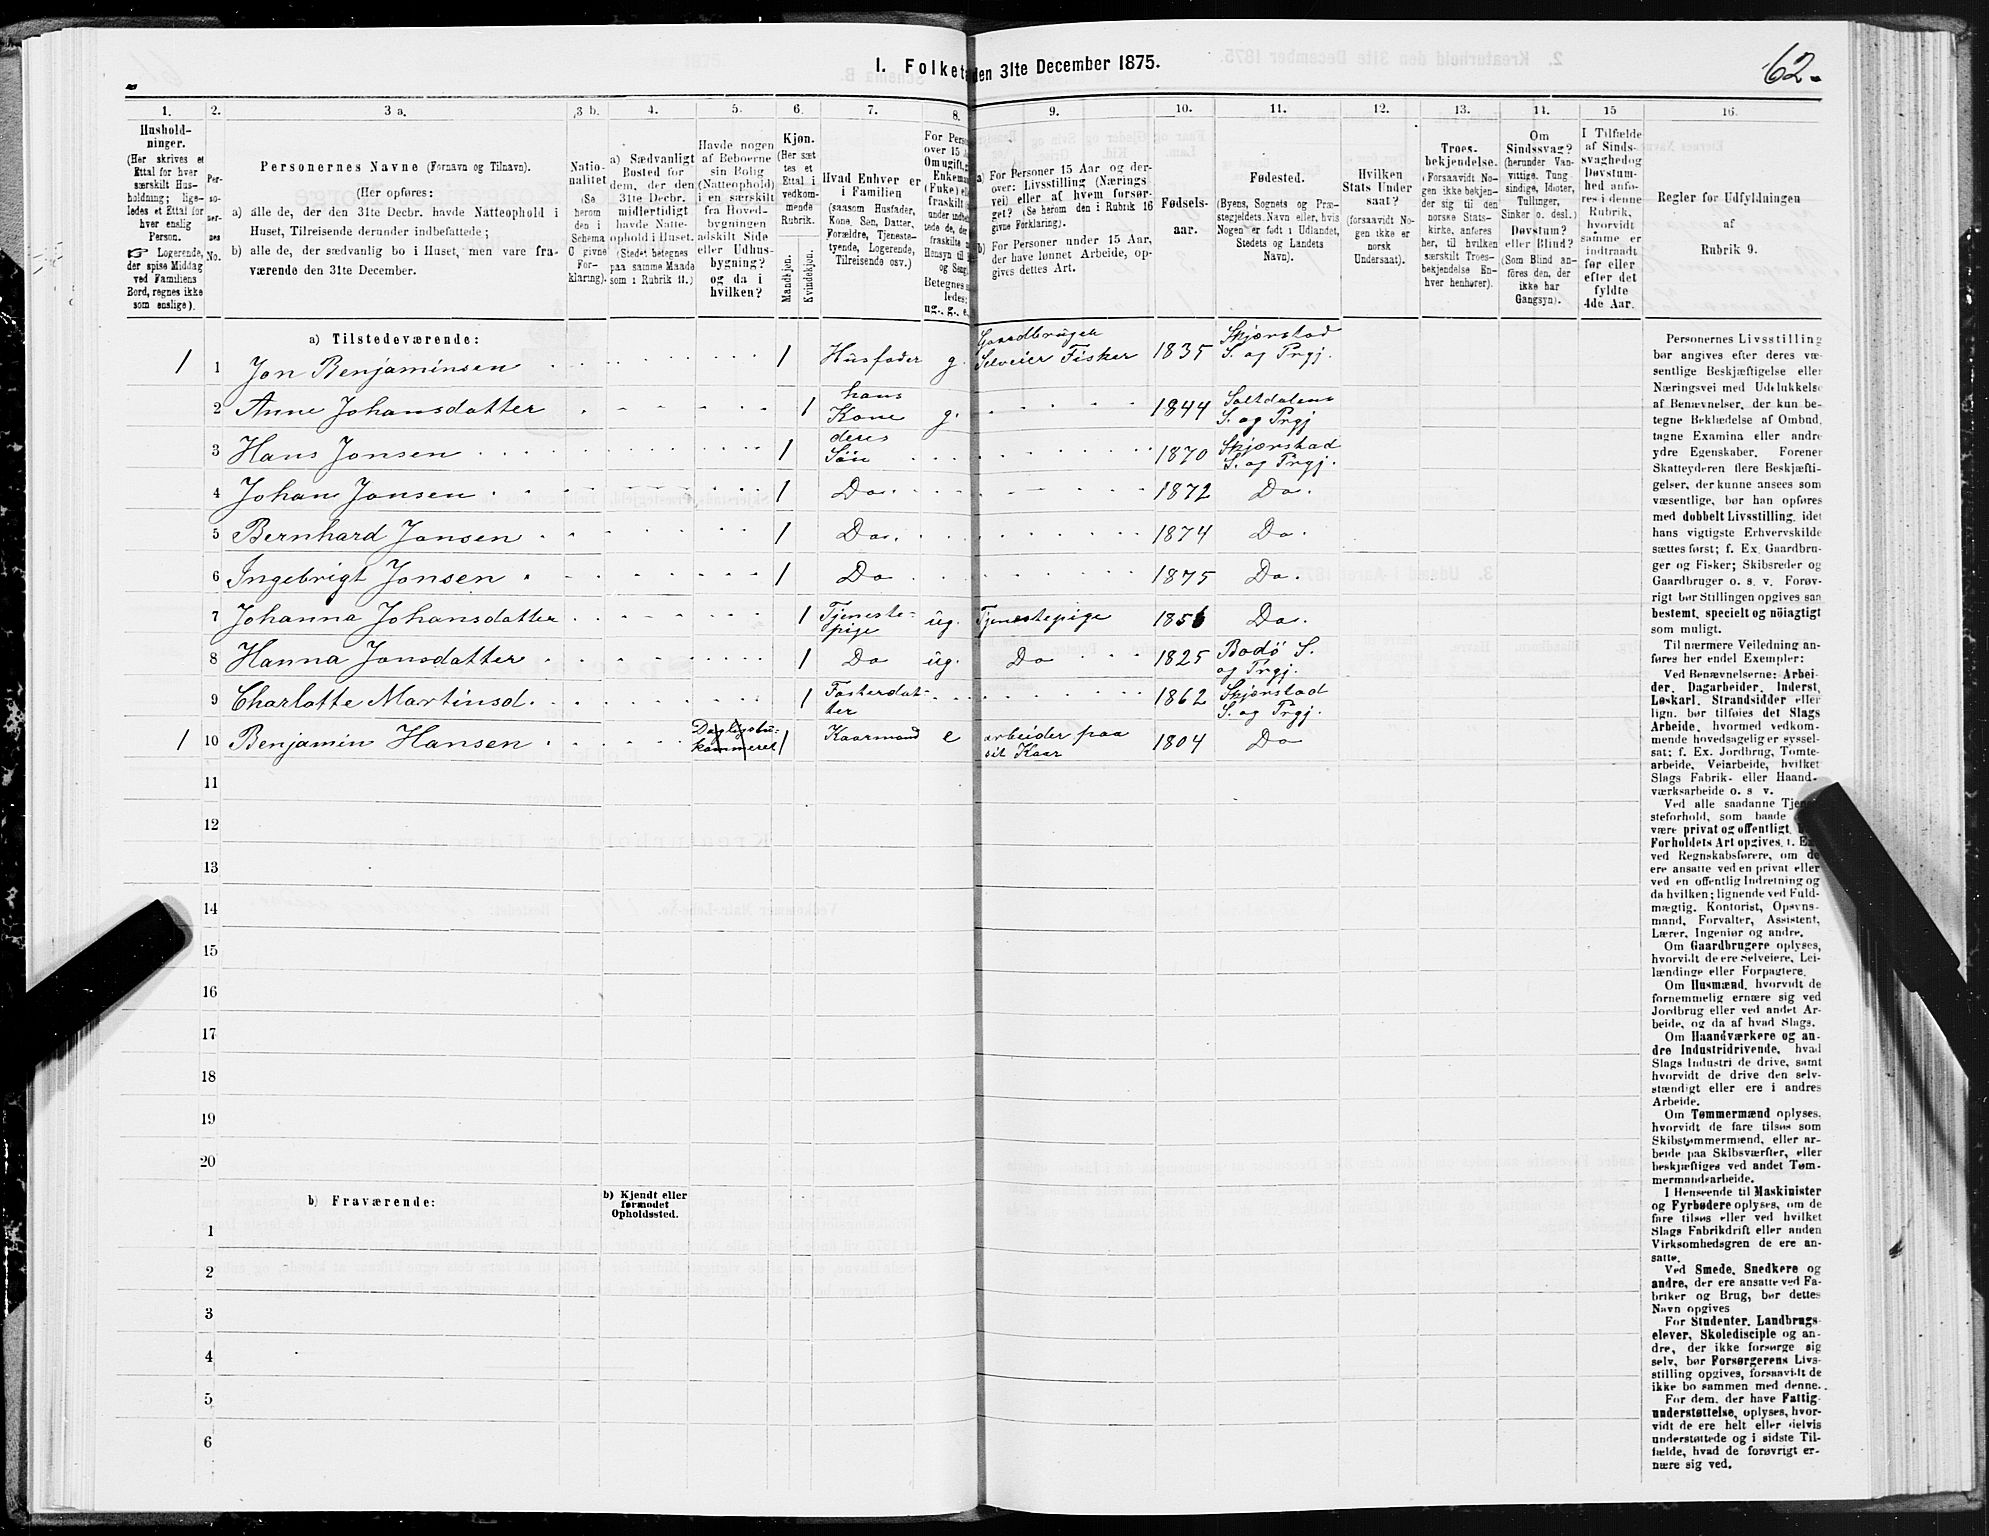 62.
I. Folket den 31te December 1875.
1. 2. 3 a. 3 b. 4. 5. 6. 7. 8. 9. 10. 11. 12. 13. 14. 15 16.
Hushold-
ninger.
(Her skrives et
Ettal for hver
særskilt Hus-
holdning; lige-
ledes et Ettal for
hver enslig
Person.
☞ Logerende,
der spise Middag
ved Familiens
Bord, regnes ikke
som enslige).
Per-
so-
ner-
nes
No.
Personernes Navne (Fornavn og Tilnavn).
(Her opføres:
a) alle de, der den 31te Decbr. havde Natteophold i
Huset, Tilreisende derunder indbefattede;
b) alle de, der sædvanlig bo i Huset, men vare fra-
værende den 31te December.
Natio-
nalitet
(Se
herom
den i
Schema
C givne
For-
klaring).
a) Sædvanligt
Bosted for
dem, der den
31te Decbr.
midlertidigt
havde Natte-
ophold i Huset.
(Stedet betegnes
paa samme Maade
som i Rubrik 11.)
Havde nogen
af Beboerne
sin Bolig
(Natteophold)
i en særskilt
fra Hoved-
bygningen
adskilt Side
eller Udhus-
bygning?
og da i
hvilken?
Kjøn.
(Her sæt
tes et
Ettal i
vedkom-
mende
Rubrik.
Mandkjøn.
Kvindekjøn.
Hvad Enhver er
i Familien
(saasom Husfader,
Kone, Søn, Datter,
Forældre, Tjeneste-
tyende, Logerende,
Tilreisende osv.)
For Pers
over 15 A
Om ugift, g
Enkema
(Fuke) el
fraskilt s
under indbe
tede de, der
fraskilte
Hensyn til
og Seng.
Betegnes s
ledes:
ug., g., e.
a) For Personer 15 Aar og der-
over: Livsstilling (Nærings
vei) eller af hvem forsør-
get? (Se herom den i Rubrik 16
givne Forklaring).
b) For Personer under 15 Aar,
der have lønnet Arbeide, op-
gives dettes Art.
Fødsels-
aar.
Fødested.
(Byens, Sognets og Præ-
stegjeldets Navn eller, hvis
Nogen er født i Udlandet,
Stedets og Landets
Navn).
Hvilken
Stats Under
saat?
(forsaavidt No-
gen ikke er
norsk
Undersaat).
Troes-
bekjendelse.
(Forsaavidt No-
gen ikke bekjen-
der sig til den
norske Stats-
kirke, anføres
her, til hvilken
særskilt Troes-
bekjendelse En-
hver henhører).
Om
Sindssvag?
(herunder Van-
vittige, Tung
sindige, Idioter,
Tullinger,
Sinker o. desl.)
Døvstum?
eller Blind?
(Som Blind an-
føres den, der
ikke har
Gangsyn).
I Tilfælde
af Sinds-
svaghed og
Døvstum-
hed anfø-
res i denne
Rubrik,
hvorvidt
samme er
indtraadt
før eller
efter det
fyldte
4de Aar.
Regler for Udfyldningen
af
Rubrik 9.
a) Tilstedeværende:
1 1 Jon Benjaminsen 1 Husfader g. Gaardbruger Selveier Fisker 1835 Skjærstad S. og Prgj.
2 Anne Johansdatter 1 hans Kone g. 1844 Saltdalens S. og Prgj
3 Hans Jonsen 1 deres Søn 1870 Skjærstad S. og Prgj.
4 Johan Jonsen 1 Do. 1872 Do.
5 Bernhard Jonsen 1 Do. 1874 Do.
6 Ingebrigt Jonsen 1 Do 1875 Do.
7 Johanna Johansdatter 1 Tjeneste-pige ug. Tjenestepige 1856 Do.
8 Hanna Jonsdatter 1 Do ug. Do 1825 Bodø S. og Prgj.
9 Charlotte Martinsd. 1 Fosterdat-ter 1862 Skjærstad S. og Prgj.
1 10 Benjamin Hansen 1 Kaarmand e arbeider paa sit Kaar 1804 Do
11
12
13
14
15
16
17
18
19
20
b) Fraværende:
b) Kjendt eller
formodet
Opholdssted.
1
2
3
4
5
6
Personernes Livsstilling
bør angives efter deres væ-
sentlige Beskjæftigelse eller
Næringsvei med Udelukkelse
af Benævnelser, der kun be-
tegne Beklædelse af Ombud,
tagne Examina eller andre
ydre Egenskaber. Forener
Skatteyderen flere Beskjæfti-
gelser, der kunne ansees som
væsentlige, bør han opføres
med dobbelt Livsstilling, idet
hans vigtigste Erhvervskilde
sættes først; f. Ex. Gaardbru-
ger og Fisker; Skibsreder og
Gaardbruger o. s. v. Forøv-
rigt bør Stillingen opgives saa
bestemt, specielt og nöiagtigt
som muligt.
Til nærmere Veiledning an-
føres her endel Exempler:
Ved Benævnelserne: Arbei-
der, Dagarbeider, Inderst,
Løskarl, Strandsidder eller
lign. bør tilføies det Slags
Arbeide, hvormed vedkom-
mende hovedsagelig er syssel-
sat; f. Ex. Jordbrug, Tomte-
arbeide, Veiarbeide, hvilket
Slags Fabrik- eller Haand-
værksarbeide o. s v.
Ved alle saadanne Tjene
steforhold, som baade
være privat og offentligt,
Forholdets Art opgives, f. Ex
ved Regnskabsførere, om de
ere ansatte ved en privat eller
ved en offentlig Indretning og
da hvilken; lignende ved Fuld-
mægtig, Kontorist, Opsyns-
mand, Forvalter, Assistent,
Lærer, Ingeniør og andre.
Om Gaardbrugere oplyses,
hvorvidt de ere Selveiere, Lei-
lændinge eller Forpagtere.
Om Husmænd, hvorvidt de
fornemmelig ernære sig ved
Jordbrug eller ved andet Ar-
beide, og da af hvad Slags.
Om Haandværkere og an-
dre Industridrivende, hvad
Slags Industri de drive, samt
hvorvidt de drive den selv-
stændigt eller ere i andres
Arbeide.
Om Tømmermænd oplyses,
hvorvidt de fare tilsøs som
Skibstømmermænd, eller ar-
beide paa Skibsværfter, eller
beskjæftiges ved andet Tøm-
mermandsarbeide.
I Henseende til Maskinister
og Fyrbødere oplyses, om de
fare tilsøs eller ved hvilket
Slags Fabrikdrift eller anden
Virksomhedsgren de ere an-
satte.
Ved Smede, Snedkere og
andre, der ere ansatte ved Fa-
briker og Brug, bør dettes
Navn opgives
For Studenter, Landbrugs-
elever, Skoledisciple og an-
dre, der ikke forsørge sig
selv, bør Forsørgerens Livs-
stilling opgives, forsaavidt de
ikke bo sammen med denne.
For dem, der have Fattig-
understøttelse, oplyses, hvor-
vidt de ere helt eller delvis
understøttede og i sidste Til-
fælde, hvad de forøvrigt er-
nære sig ved.